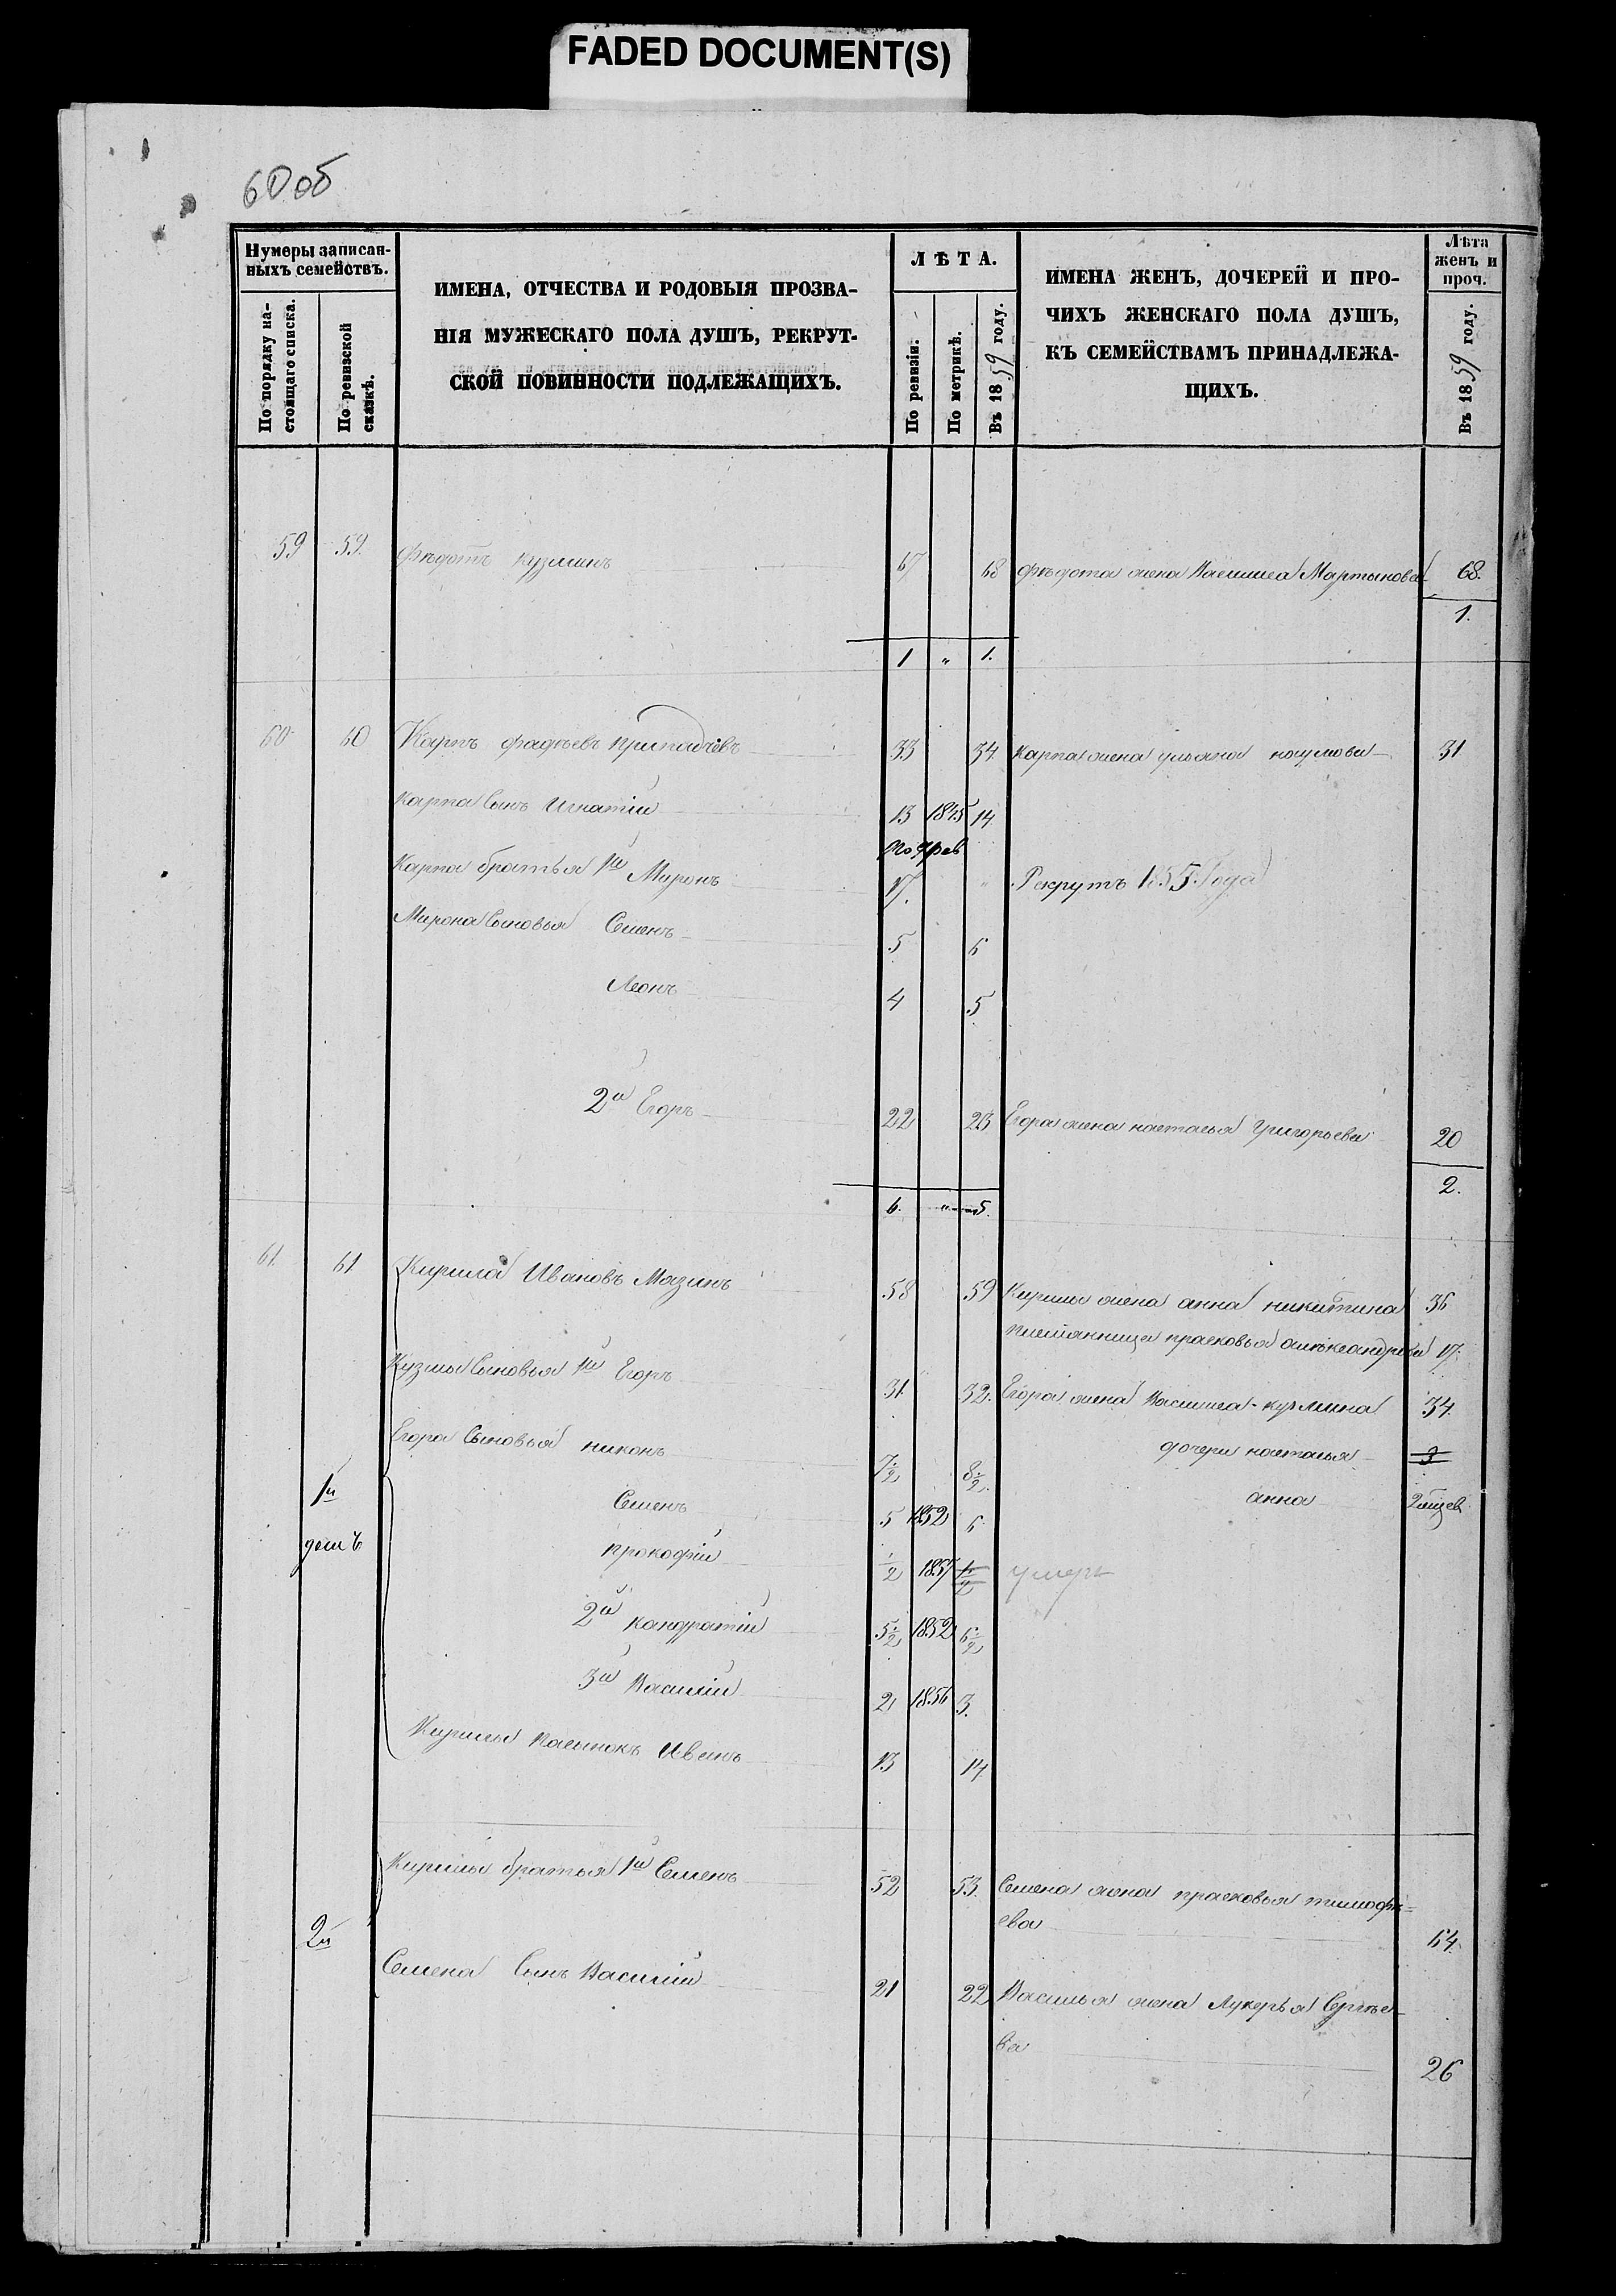 FADED DOCUMENT(S)
60 об
Нумеры записан-
ныхъ семействъ.
По порядку на-
стоящаго списка.
По ревизской
сказкѣ.
ИМЕНА, ОТЧЕСТВА И РОДОВЫЯ ПРОЗВА-
НІЯ МУЖЕСКАГО ПОЛА ДУШЪ, РЕКРУТ-
СКОЙ ПОВИННОСТИ ПОДЛЕЖАЩИХЪ.
ЛѢТА.
По ревизіи.
По метрикѣ.
Въ 1859 году.
ИМЕНА ЖЕНЪ, ДОЧЕРЕЙ И ПРО-
ЧИХЪ ЖЕНСКАГО ПОЛА ДУШЪ,
КЪ СЕМЕЙСТВАМЪ ПРИНАДЛЕЖА-
ЩИХЪ.
Лѣта
женъ и
проч.
Въ 1859 году.
59 59. Фѣдотъ кузминъ 67 68 фѣдота жена Василиса Мартынова 68.
1.
1 " 1.
60 60 Карпъ фадѣевъ 33 34. карпа жена ульяна наумова 31
карпа Сынъ Игнатій 13 1845 14.
Карпа братья 1й Миронъ 17. " Рекрутъ 1855. Года
Мирона Сыновья Семенъ 5 6
Леонъ 4 5
2й Егоръ 22 23 Егора жена настасья Григорьева 20
2.
6. " 5.
61. 61 Кирила Ивановъ Мазинъ 58 59 Кирилы жена анна никитина 36
племянница прасковья 17.
Кузмы Сыновья 1й Егоръ 31 32. Егора жена Василиса кузмина 34.
Егора Сыновья никонъ 7 1/2 8 1/2 дочери настасья 3
1й Семенъ 5 1852 6 анна
прокофій 1/2 1857 1 1/2 умеръ
2й кондратій 5 1/2 1852 6 1/2
3й Василій 2 1856 3.
Кирилы Иванъ 13 14.
Кирилы братья 1й Семенъ 52 53. Семена жена прасковья тимофѣ=
ева 64.
2й
Семена Сынъ Василій 21 22 Василья жена Лукерья Сергѣе-
ва 26